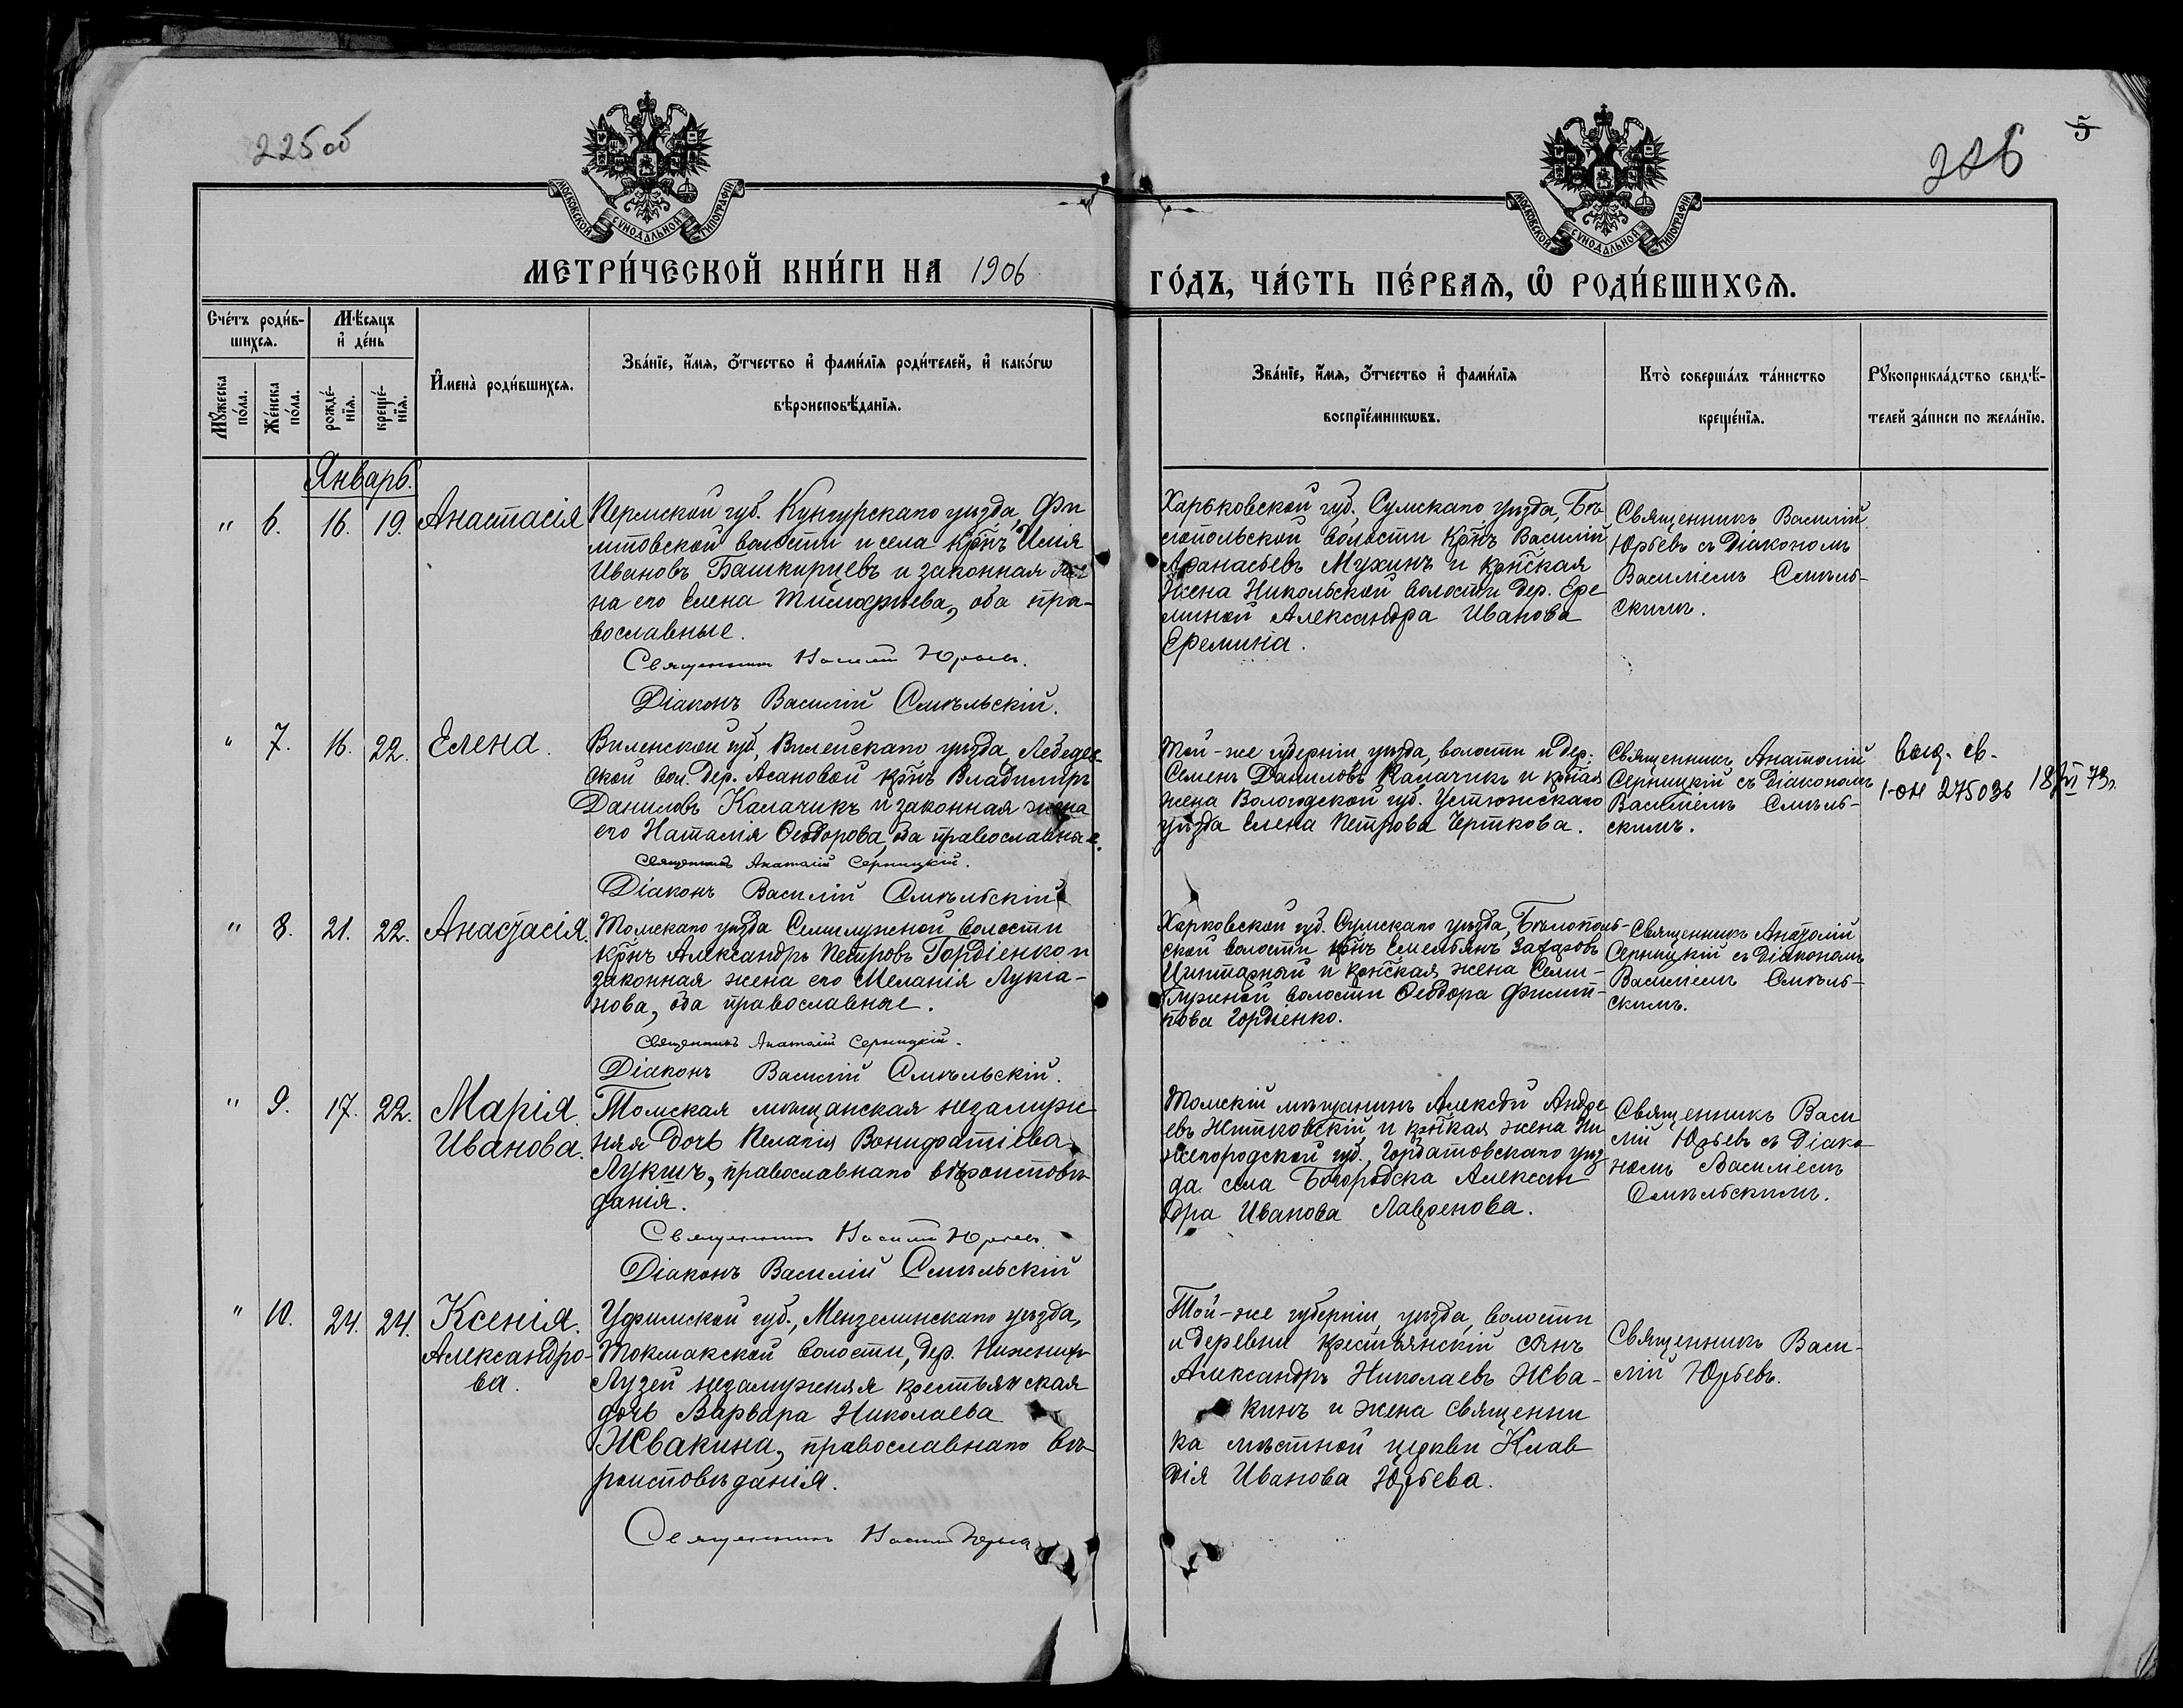 225об
226
5
МОСКОВСКОЙ СѴНОДАЛЬНОЙ ТИПОГРАФІИ
МОСКОВСКОЙ СѴНОДАЛЬНОЙ ТИПОГРАФІИ
МЕТРИ́ЧЕСКОЙ КНИ́ГИ НА 1906
ГО́ДЪ, ЧА́СТЬ ПЕ́РВАѦ, Ѽ РОДИ́ВШИХСѦ.
Сче́тъ роди́в-
шихсѧ.
Мѣ́сѧцъ
и҆ де́нь
Мꙋ́жеска
по́ла.
Же́нска
по́ла.
рожде́-
нїѧ.
креще́-
нїѧ.
И҆мена̀ роди́вшихсѧ.
Зва́нїе, и҆́мѧ, ѻ҆́тчество и҆ фами́лїѧ роди́телей, и҆ како́гѡ
вѣроисповѣ́данїѧ.
Зва́нїе, и҆́мѧ, ѻ҆́тчество и҆ фами́лїѧ
воспрїе́мникѡвъ.
Кто̀ соверша́лъ та́инство
креще́нїѧ.
Рꙋкоприкла́дство свидѣ́-
телей за́писи по жела́нїю.
Январь.
" 6. 16. 19. Анастасія
Пермской губ. Кунгурскаго уѣзда, Фи
липовской волости и села крнъ Илія
Ивановъ Башкирцевъ и законная же
на его Елена Тимофеева, оба пра-
вославные.
Священникъ Василій Юрьевъ.
Діаконъ Василій Смѣльскій.
Харьковской губ., Сумскаго уѣзда, Бѣ
лопольской волости крнъ Василій
Афанасьевъ Мухинъ и крнская
жена Никольской волости дер. Ере
миной Александра Иванова
Еремина.
Священникъ Василій
Юрьевъ съ Діакономъ
Василіемъ Смѣль-
скимъ.
" 7. 16. 22. Елена.
Виленской губ., Вилейскаго уѣзда, Лебедев-
ской вол. дер. Асановой крнъ Владимиръ
Даниловъ Калачикъ и законная жена
его Наталія Ѳеодорова, оба православные.
Священникъ Анатолій Серницкій.
Діаконъ Василій Смѣльскій
Той-же губерніи уѣзда, волости и дер.
Семенъ Даниловъ Калачикъ и крная
жена Вологодской губ. Устюжскаго
уѣзда Елена Петрова Черткова.
Священникъ Анатолій
Серницкій съ Діакономъ
Василіемъ Смѣль-
скимъ.
выд. св.
I-ОМ 275036 18/VI 73г.
" 8. 21. 22. Анастасія.
Томскаго уѣзда Семилуженой волости
крнъ Александръ Петровъ Гордіенко и
законная жена его Меланія Лукіа-
нова, оба православные.
Священникъ Анатолій Серницкій.
Діаконъ Василій Смѣльскій.
Харковской губ. Сумскаго уѣзда, Бѣлополь-
ской волости крнъ Емельянъ Захаровъ
и крнская жена Семи-
луженой волости Ѳеодора Филип-
пова Гордіенко.
Священникъ Анатолій
Серницкій съ Діакономъ
Василіемъ Смѣль-
скимъ.
" 9. 17. 22. Марія
Иванова.
Томская мѣщанская незамуж-
няя дочь Пелагія Вонифатіева
Лукшъ, православнаго вѣроисповѣ-
данія.
Священникъ Василій Юрьевъ.
Діаконъ Василій Смѣльскій
Томскій мѣщанинъ Алексѣй Андре
евъ Житковскій и крнская жена Ни
жегородской губ. Горбатовскаго уѣз-
да села Богородска Алексан-
дра Иванова Лавренова.
Священникъ Васи
лій Юрьевъ съ Діако-
номъ Василіемъ
Смѣльскимъ.
" 10. 24. 24. Ксенія.
Александро-
ва.
Уфимской губ., Мензелинскаго уѣзда,
Токмакской волости, дер. Нижнихъ
Лузей незамужняя крестьянская
дочь Варвара Николаева
Жвакина, православнаго вѣ-
роисповѣданія.
Священникъ Василій Юрьевъ
Той-же губерніи, уѣзда, волости
и деревни крестьянскій сынъ
Александръ Николаевъ Жва-
кинъ и жена священни
ка мѣстной церкви Клав
дія Иванова Юрьева.
Священникъ Васи-
лій Юрьевъ.